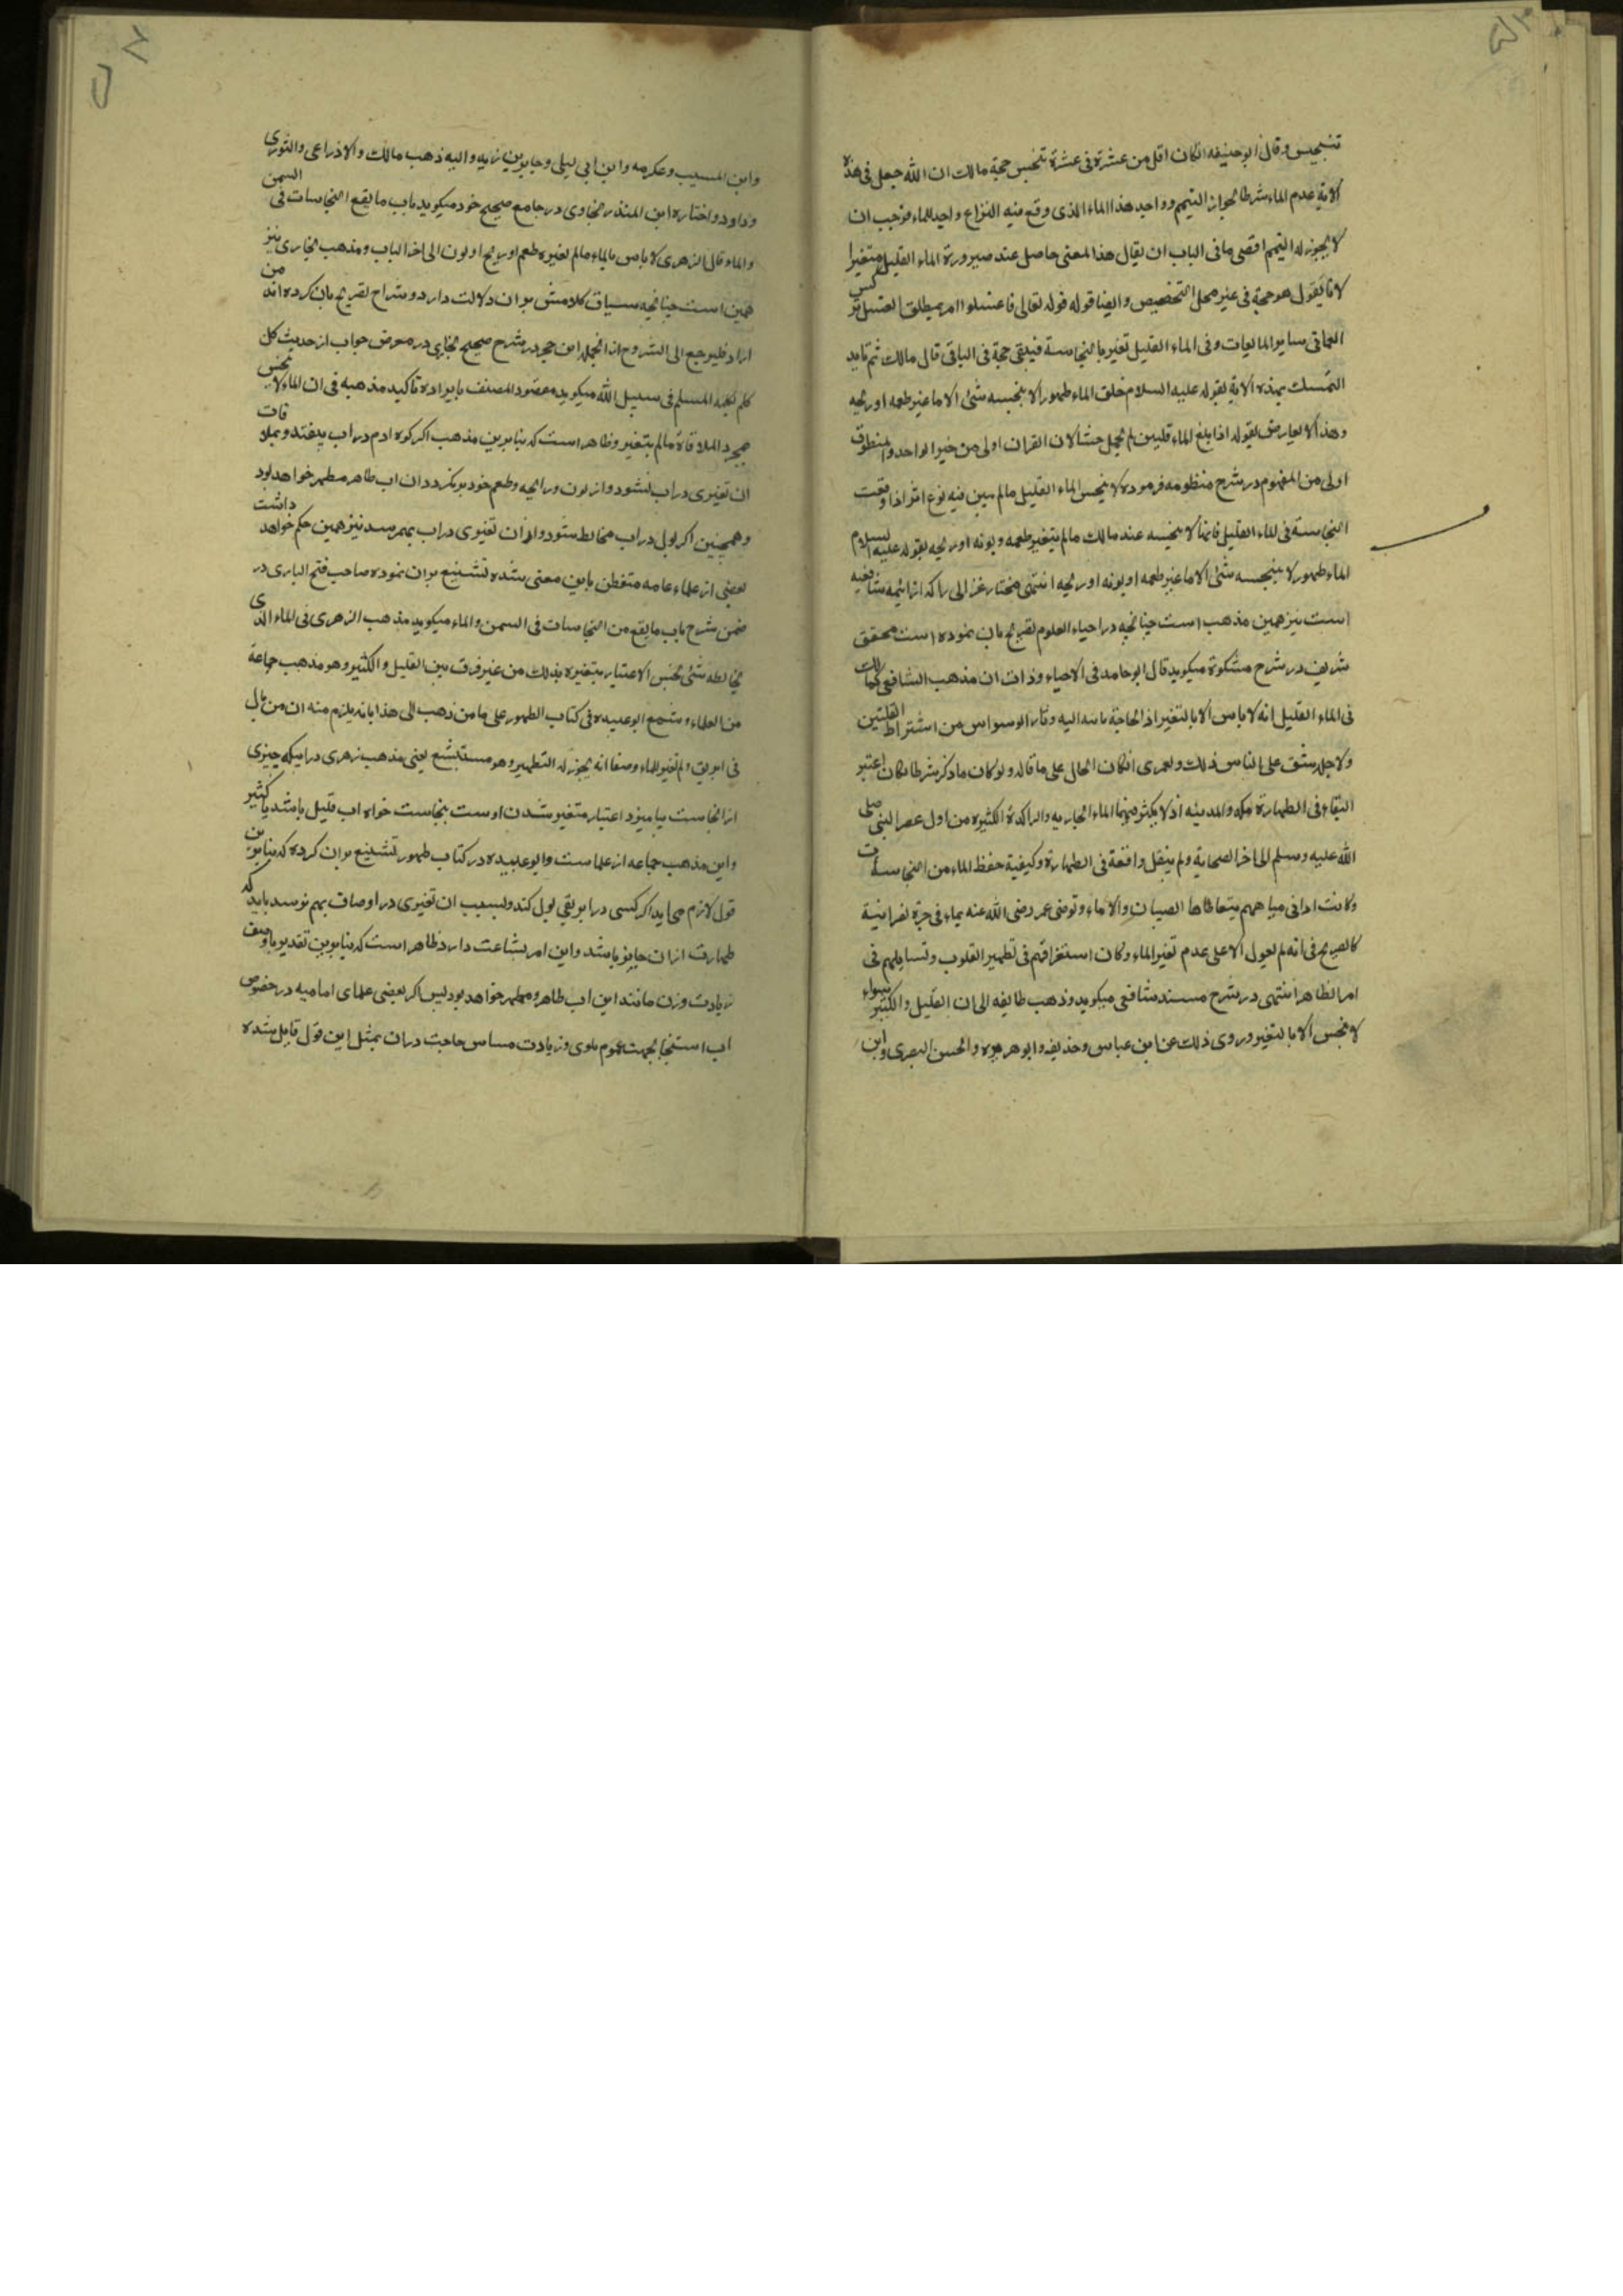 تنجیس و قال ابو حنیفه انکان اقل من عشرة فی عشرة تنجس حجة مالک ان الله جعل فی هذه
الایة عدم الماء شرطا لجواز التیمم و واجد هذا الماء الذی وقع فیه النزاع واجد للماء فوجب ان
لا یجوز له التیمم اقصی ما فی الباب ان یقال هذا المعنی حاصل عند صیرورة الماء القلیل متغیرا
لانا نقول هو حجة فی غیر محل التخصیص و ایضا قوله قوله تعالی فاغسلوا امر بمطلق الغسل ترک
العمل فی سایر المایعات و فی الماء القلیل تغیر بالنجاسة فیبقی حجة فی الباقی قال مالک ثم تاید
التمسک بهذه الایة بقوله علیه السلام خلق الماء طهورا لا ینجسه شئ الا ما غیر طعمه او ریحه
و هذا لا یعارض بقوله اذا بلغ الماء قلتین لم یحمل خبثا لان القران اولی من خبر الواحد و المنطوق
اولی من المفهوم در شرح منظومه فرموده لا ینجس الماء القلیل ما لم یبن فیه نوع اثر اذا وقعت
النجاسة فی الماء القلیل فانها لا ینجسه عند مالک ما لم یتغیر طعمه و لونه او ریحه بقوله علیه السلام
الماء طهور لا ینجسه شئ الا ما غیر طعمه او لونه او ریحه انتهی مختار غزالی را که از ائمه شافعیه
است نیز همین مذهب است چنانچه در احیاء العلوم تصریح بان نموده است محقق
شریف در شرح مشکوة میکوید قال ابو حامد فی الاحیاء وددت ان مذهب الشافعی کمالک
فی الماء القلیل انه لا باس الا بالتغیر اذ الحاجة ماسه الیه و ثار الوسواس من اشتراط القلتین
و لاجله شق علی الناس ذلک و لعمری انکان الحال علی ما قاله و لو کان ما ذکر شرطا لکان اعتبر
البقاء فی الطهارة مکه و المدینه اذ لا یکثر فیهما الماء الجاریه و الراکدة الکثیره من اول عصر النبی صلی
الله علیه و سلم الی اخر الصحابة و لم ینقل واقعة فی الطهارة و کیفیة حفظ الماء من النجاسات
و کانت اوانی میاههم یتعاطاها الصبیان و الاماء و توضی عمر رضی الله عنه بماء فی جرة نصرانیة
کالصریح فی انه لم یعول الا علی عدم تغیر الماء و کان استغراقهم فی تطهیر القلوب و تساهلهم فی
امر الظاهر انتهی در شرح مسند شافعی میکوید و ذهب طایفه الی ان القلیل و الکثیر سواء
لا ینجس الا بالتغیر و روی ذلک عن ابن عباس و حذیفه و ابو هریره و الحسن البصری و ابن
و ابن المسیب و عکرمه و ابن ابی لیلی و جابر بن زید و الیه ذهب مالک و الاوزاعی و الثوری
و داود و اختاره ابن المنذر بخاری در جامع صحیح خود میکوید باب ما یقع النجاسات فی السمن
و الماء و قال الزهری لا باس بالماء ما لم یغیره طعم او ریح او لون الی اخر الباب و مذهب بخاری نیز
همین است چنانچه سیاق کلامش بران دلالت دارد و شراح تصریح بان کرده اند من
اراد فلیرجع الی الشروح از انجمله ابن حجر در شرح صحیح بخاری در معرض جواب از حدیث کل
کلم یکلمه المسلم فی سبیل الله میکوید مقصود المصنف بایراده تاکید مذهبه فی ان الماء لا ینجس
بمجرد الملاقاة ما لم یتغیر و ظاهر است که بنا برین مذهب اکر کوه ادم در اب بیفتد و بملاقات
ان تغیری در اب نشود و از لون و رایحه و طعم خود بر نکردد ان اب طاهر مطهر خواهد بود
و همچنین اکر بول در اب مخالط شود و ازان تغیری در اب بهم نرسد نیز همین حکم خواهد داشت
بعضی از علماء عامه متفطن باین معنی شده تشنیع بران نموده صاحب فتح الباری در
ضمن شرح باب ما یقع من النجاسات فی السمن و الماء میکوید مذهب الزهری فی الماء الذی
یخالطه شئ نجس الاعتبار بتغیره بذلک من غیر فرق بین القلیل و الکثیر و هو مذهب جماعة
من العلماء و شنع ابو عبیده فی کتاب الطهور علی من ذهب الی هذا بانه یلزم منه ان من بال
فی ابریق و لم یغیر للماء وصفا انه یجوز له التطهیر و هو مستبشع یعنی مذهب زهری در اینکه چیزی
از نجاست بیامیزد اعتبار متغیر شدن اوست بنجاست خواه اب قلیل باشد یا کثیر
و این مذهب جماعه از علماست و ابو عبیده در کتاب طهور تشنیع بران کرده که بنا برین
قول لازم می اید اکر کسی در ابریقی بول کند و بسبب ان تغیری در اوصاف بهم نرسد باید که
طهارت ازان جایز باشد و این امر بشاعت دارد ظاهر است که بنا برین تقدیر با وصف
زیادت وزن مانند این اب طاهر و مطهر خواهد بود پس اکر بعضی علمای امامیه در خصوص
اب استنجا بجهت عموم بلوی و زیادت مساس حاجت دران بمثل این قول قایل شده